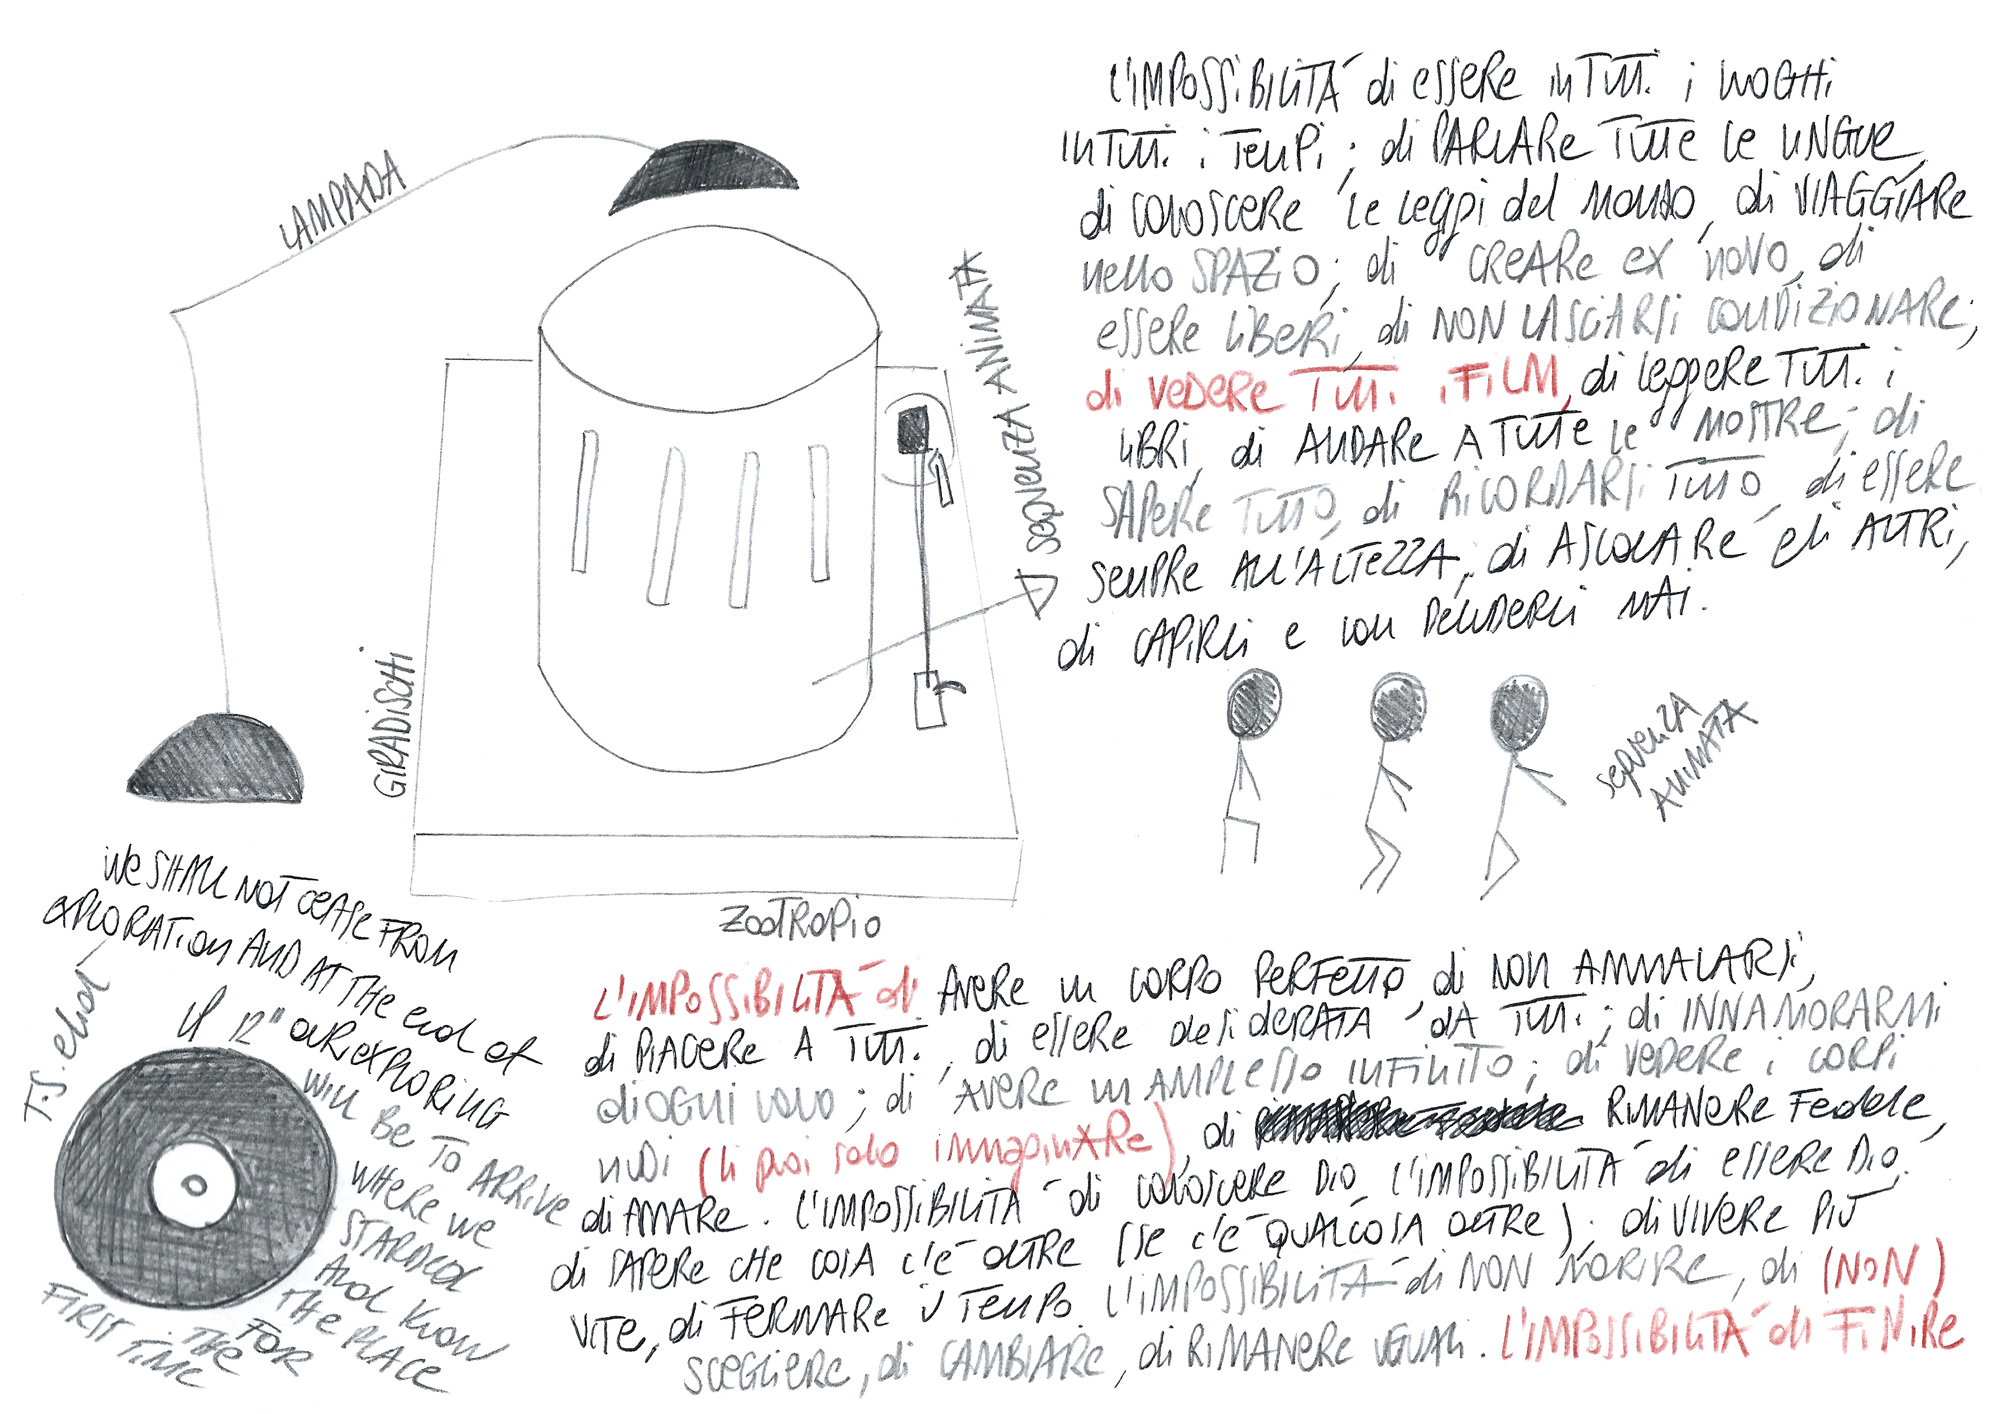 LAMPADA
L'IMPOSSIBILITÀ di essere in TUTTI i LUOGHI
IN TUTTI i TEMPI; di PARLARE TUTTE le LINGUE,
di CONOSCERE le leggi del MONDO, di VIAGGIARE
nello SPAZIO; di CREARE EX NOVO, di
essere LIBERI, di NON LASCIARSI CONDIZIONARE;
di VEDERE TUTTI i FILM, di leggere TUTTI i
LIBRI, di ANDARE A TUTTE le MOSTRE; di
SAPERE TUTTO, di RICORDARSI TUTTO, di essere
SEMPRE ALL'ALTEZZA; di ASCOLTARE gli ALTRI,
di CAPIRLI e non DELUDERLI MAI.
SEQUENZA ANIMATA
GIRADISCHI
ZOOTROPIO
SEQUENZA
ANIMATA
WE SHALL NOT CEASE FROM
EXPLORATION AND AT THE end of
OUR EXPLORING
WILL BE TO ARRIVE
WHERE WE
STARTED
AND KNOW
THE PLACE
FOR
THE
FIRST TIME
T.S. Eliot
LP 12"
L'IMPOSSIBILITÀ di AVERE un CORPO PERFETTO, di NON AMMALARSI,
di PIACERE A TUTTI, di essere desiderata DA TUTTI; di INNAMORARMI
di OGNI UOMO; di AVERE un AMPLESSO INFINITO; di VEDERE i CORPI
NUDI (li puoi solo immaginARe), di RIMANERE Fedele,
di AMARE. L'IMPOSSIBILITÀ di CONOSCERE DIO. L'IMPOSSIBILITÀ di essere DIO.
di SAPERE CHE COSA C'È OLTRE (se c'è QUALCOSA OLTRE); di VIVERE PIÙ
VITE, di FERMARE il TEMPO. L'IMPOSSIBILITÀ di NON MORIRE, di (NON)
SCEGLIERE, di CAMBIARE, di RIMANERE UGUALI. L'IMPOSSIBILITÀ di FINIRE